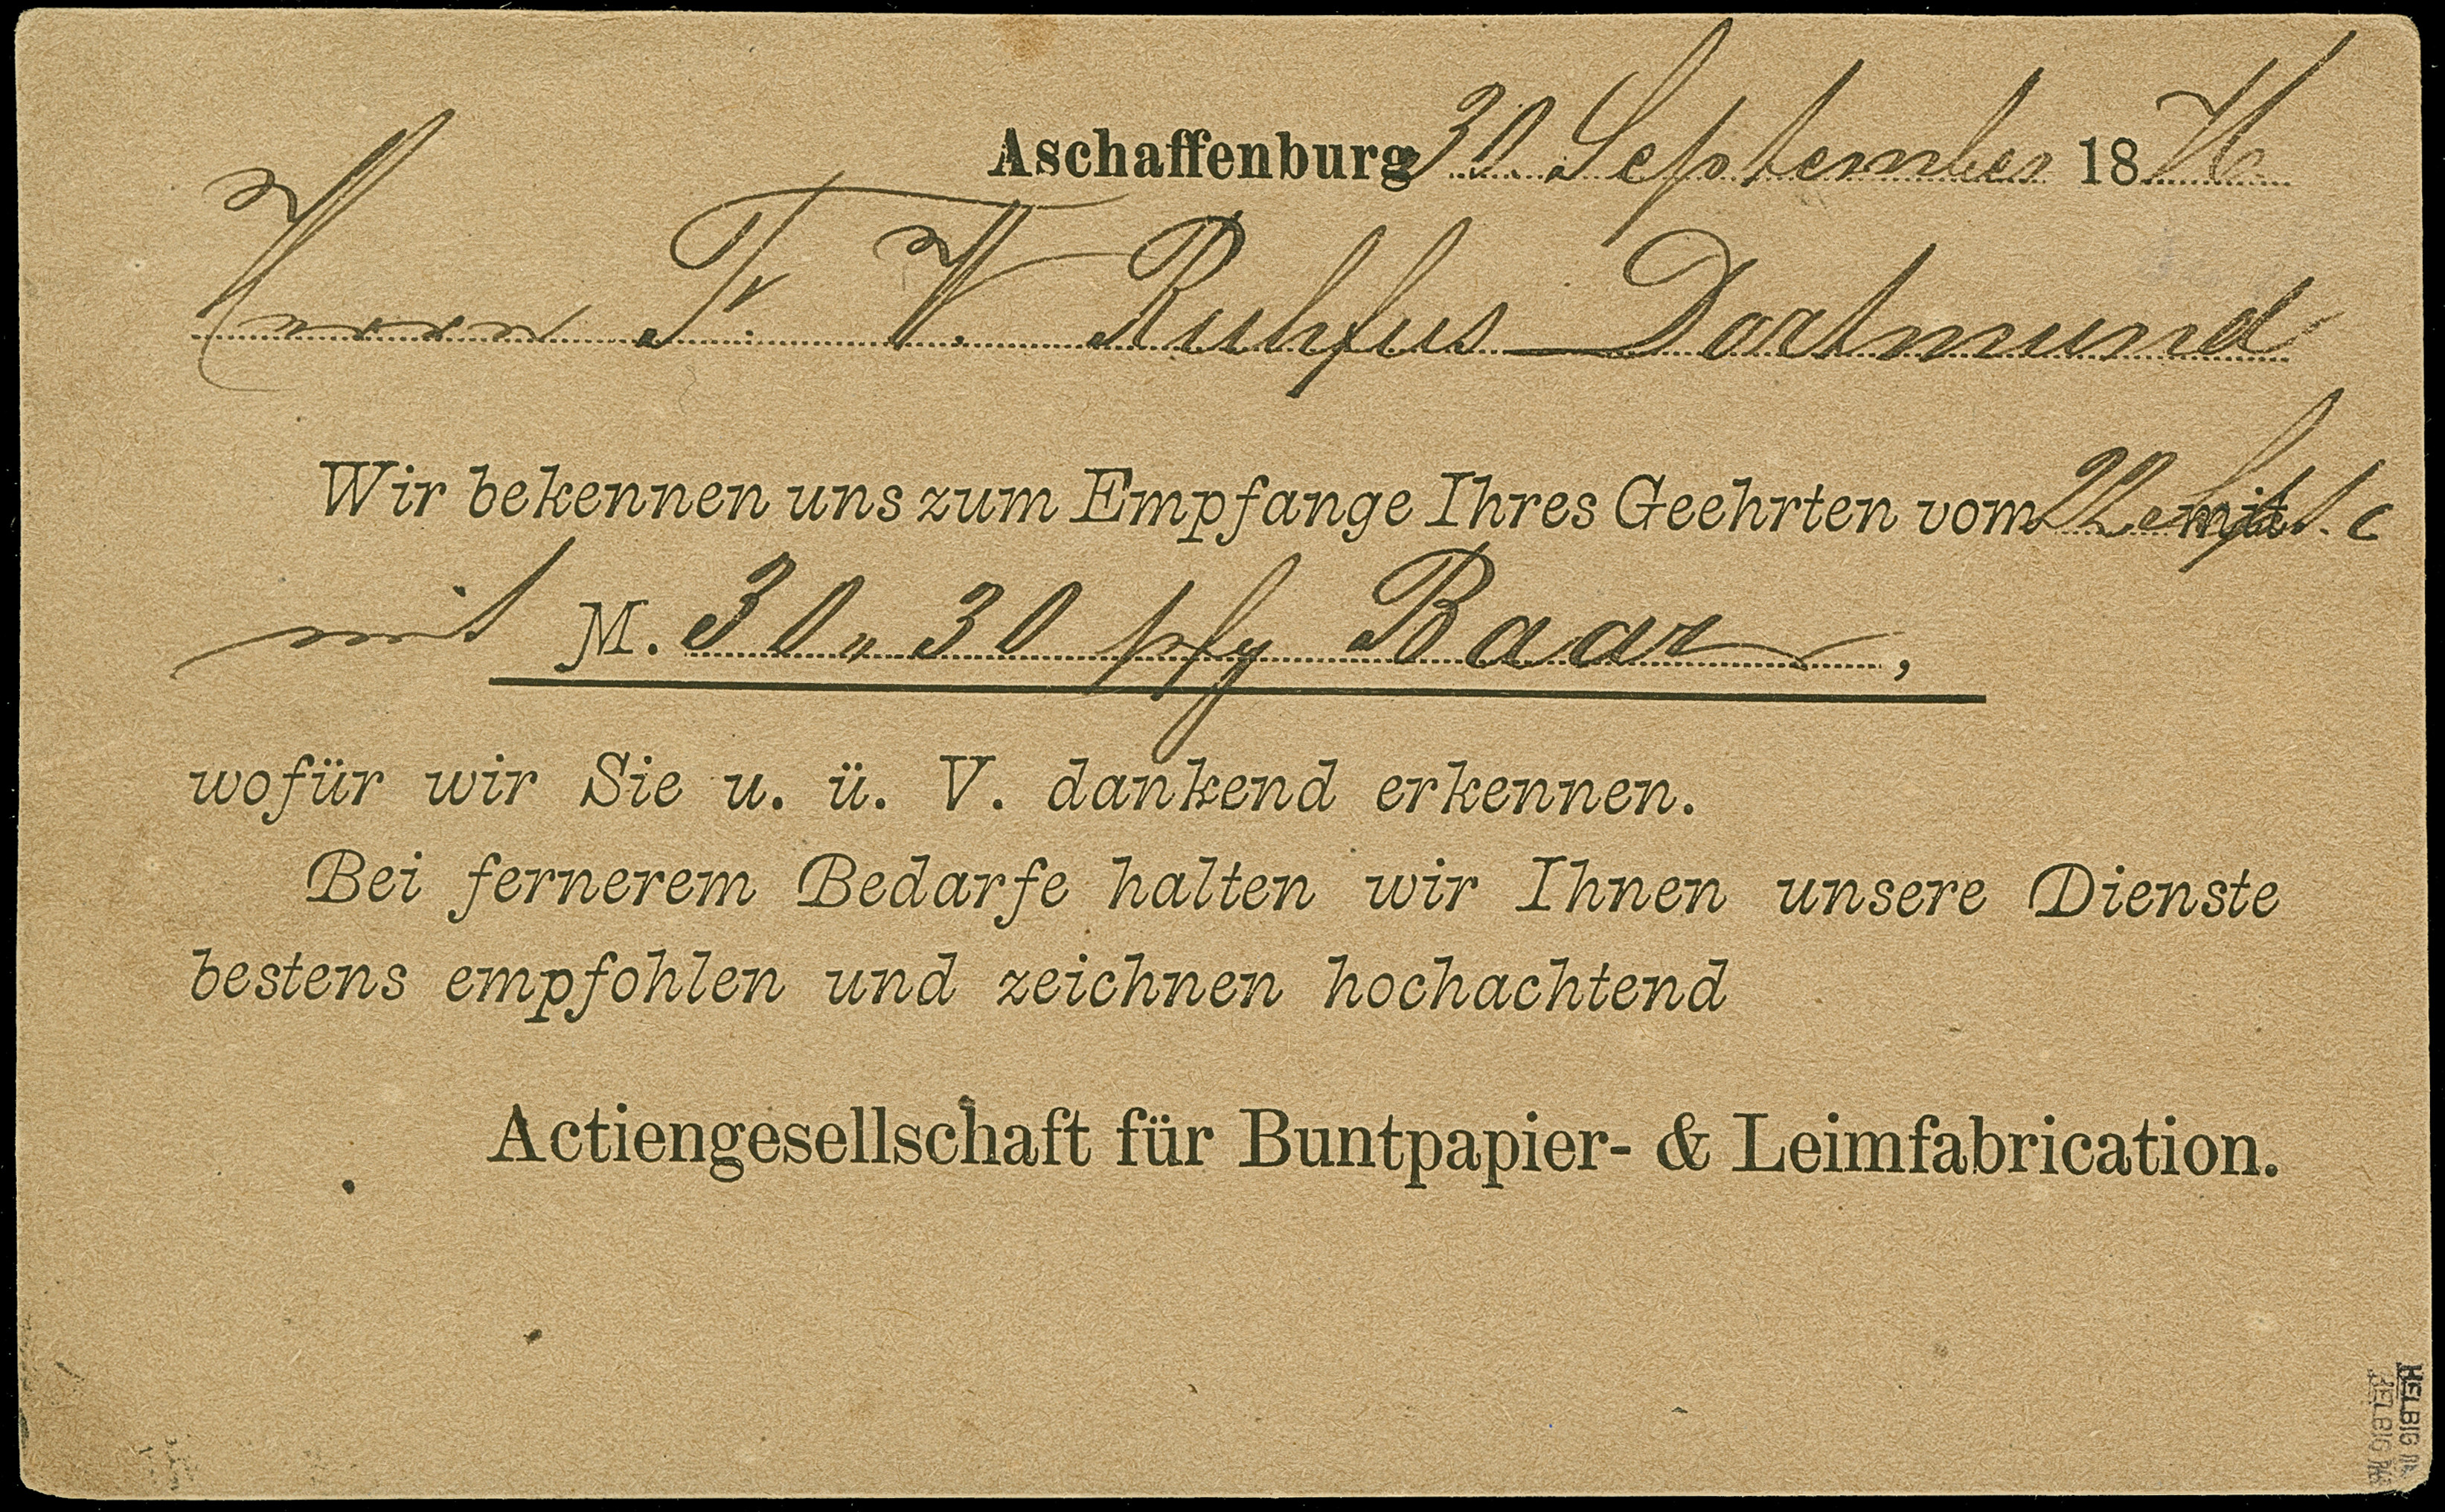 Aschaffenburg 30. September 1876
Herrn Fr. W. Ruhfus Dortmund
Wir bekennen uns zum Empfange Ihres Geehrten vom 22 Sept. c
mit M. 30 „ 30 pfg Baar,
wofür wir Sie u. ü. V. dankend erkennen.
Bei fernerem Bedarfe halten wir Ihnen unsere Dienste
bestens empfohlen und zeichnen hochachtend
Actiengesellschaft für Buntpapier- & Leimfabrication.
HELBIG
HELBIG